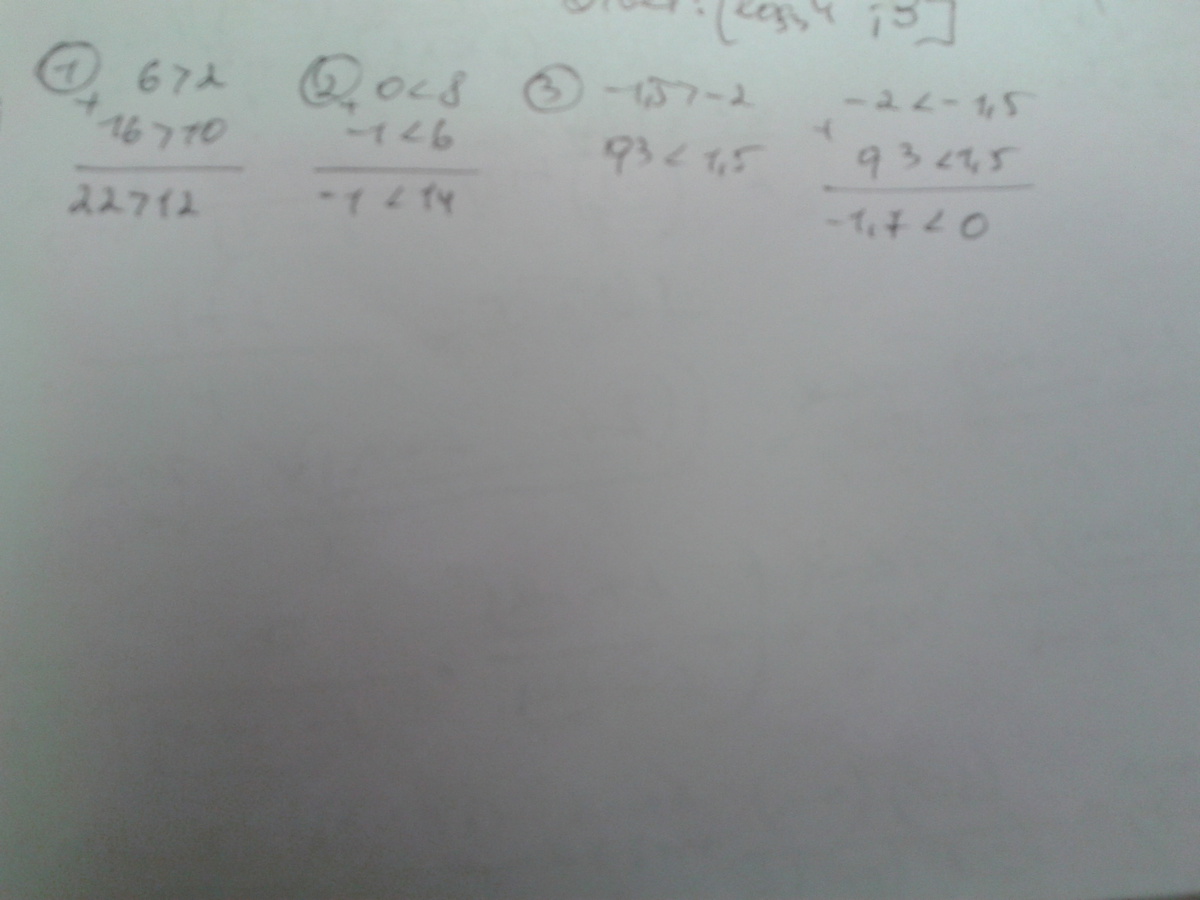 [log₃4 ; 3]
① 6>2
+ 16>10
22>12
② 0<8
+ -1<6
-1<14
③ -1,5>-2
0,3<1,5
-2<-1,5
+ 0,3<1,5
-1,7<0